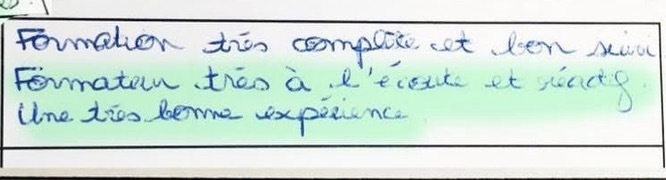 Formation très complète et bon suivi
Formateur très à l'écoute et réactif.
Une très bonne expérience